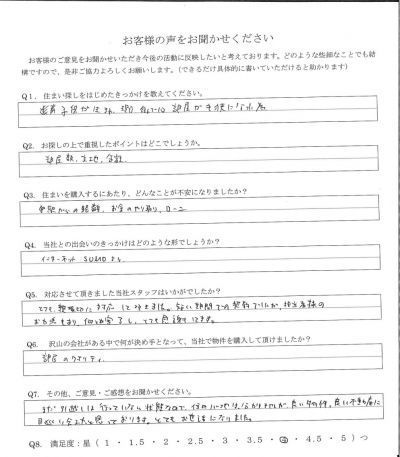 お客様の声をお聞かせください
お客様のご意見をお聞かせいただき今後の活動に反映したいと考えております。どのような些細なことでも結
構ですので、是非ご協力よろしくお願いします。(できるだけ具体的に書いていただけると助かります)
Q1. 住まい探しをはじめたきっかけを教えてください。
部屋が手狭になった為
Q2. お探しの上で重視したポイントはどこでしょうか。
部屋数、立地、金額
Q3. 住まいを購入するにあたり、どんなことが不安になりましたか?
お金のやり取り、ローン
Q4. 当社との出会いのきっかけはどのような形でしょうか?
インターネット SUUMOさん
Q5. 対応させて頂きました当社スタッフはいかがでしたか?
とても親切に対応して頂きました。短い期間での契約でしたが、担当者様の
お力添えもあり、何とか完了し、とても感謝してます。
Q6. 沢山の会社がある中で何が決め手となって、当社で物件を購入して頂けましたか?
Q7. その他、ご意見・ご感想をお聞かせください。
まだ引越しは行っていない状態なので、住み心地は分かりませんが、良い物件、良い不動産に
思っております。とてもお世話になりました。
Q8. 満足度:星(1・1.5・2・2.5・3・3.5・4・4.5・5)つ